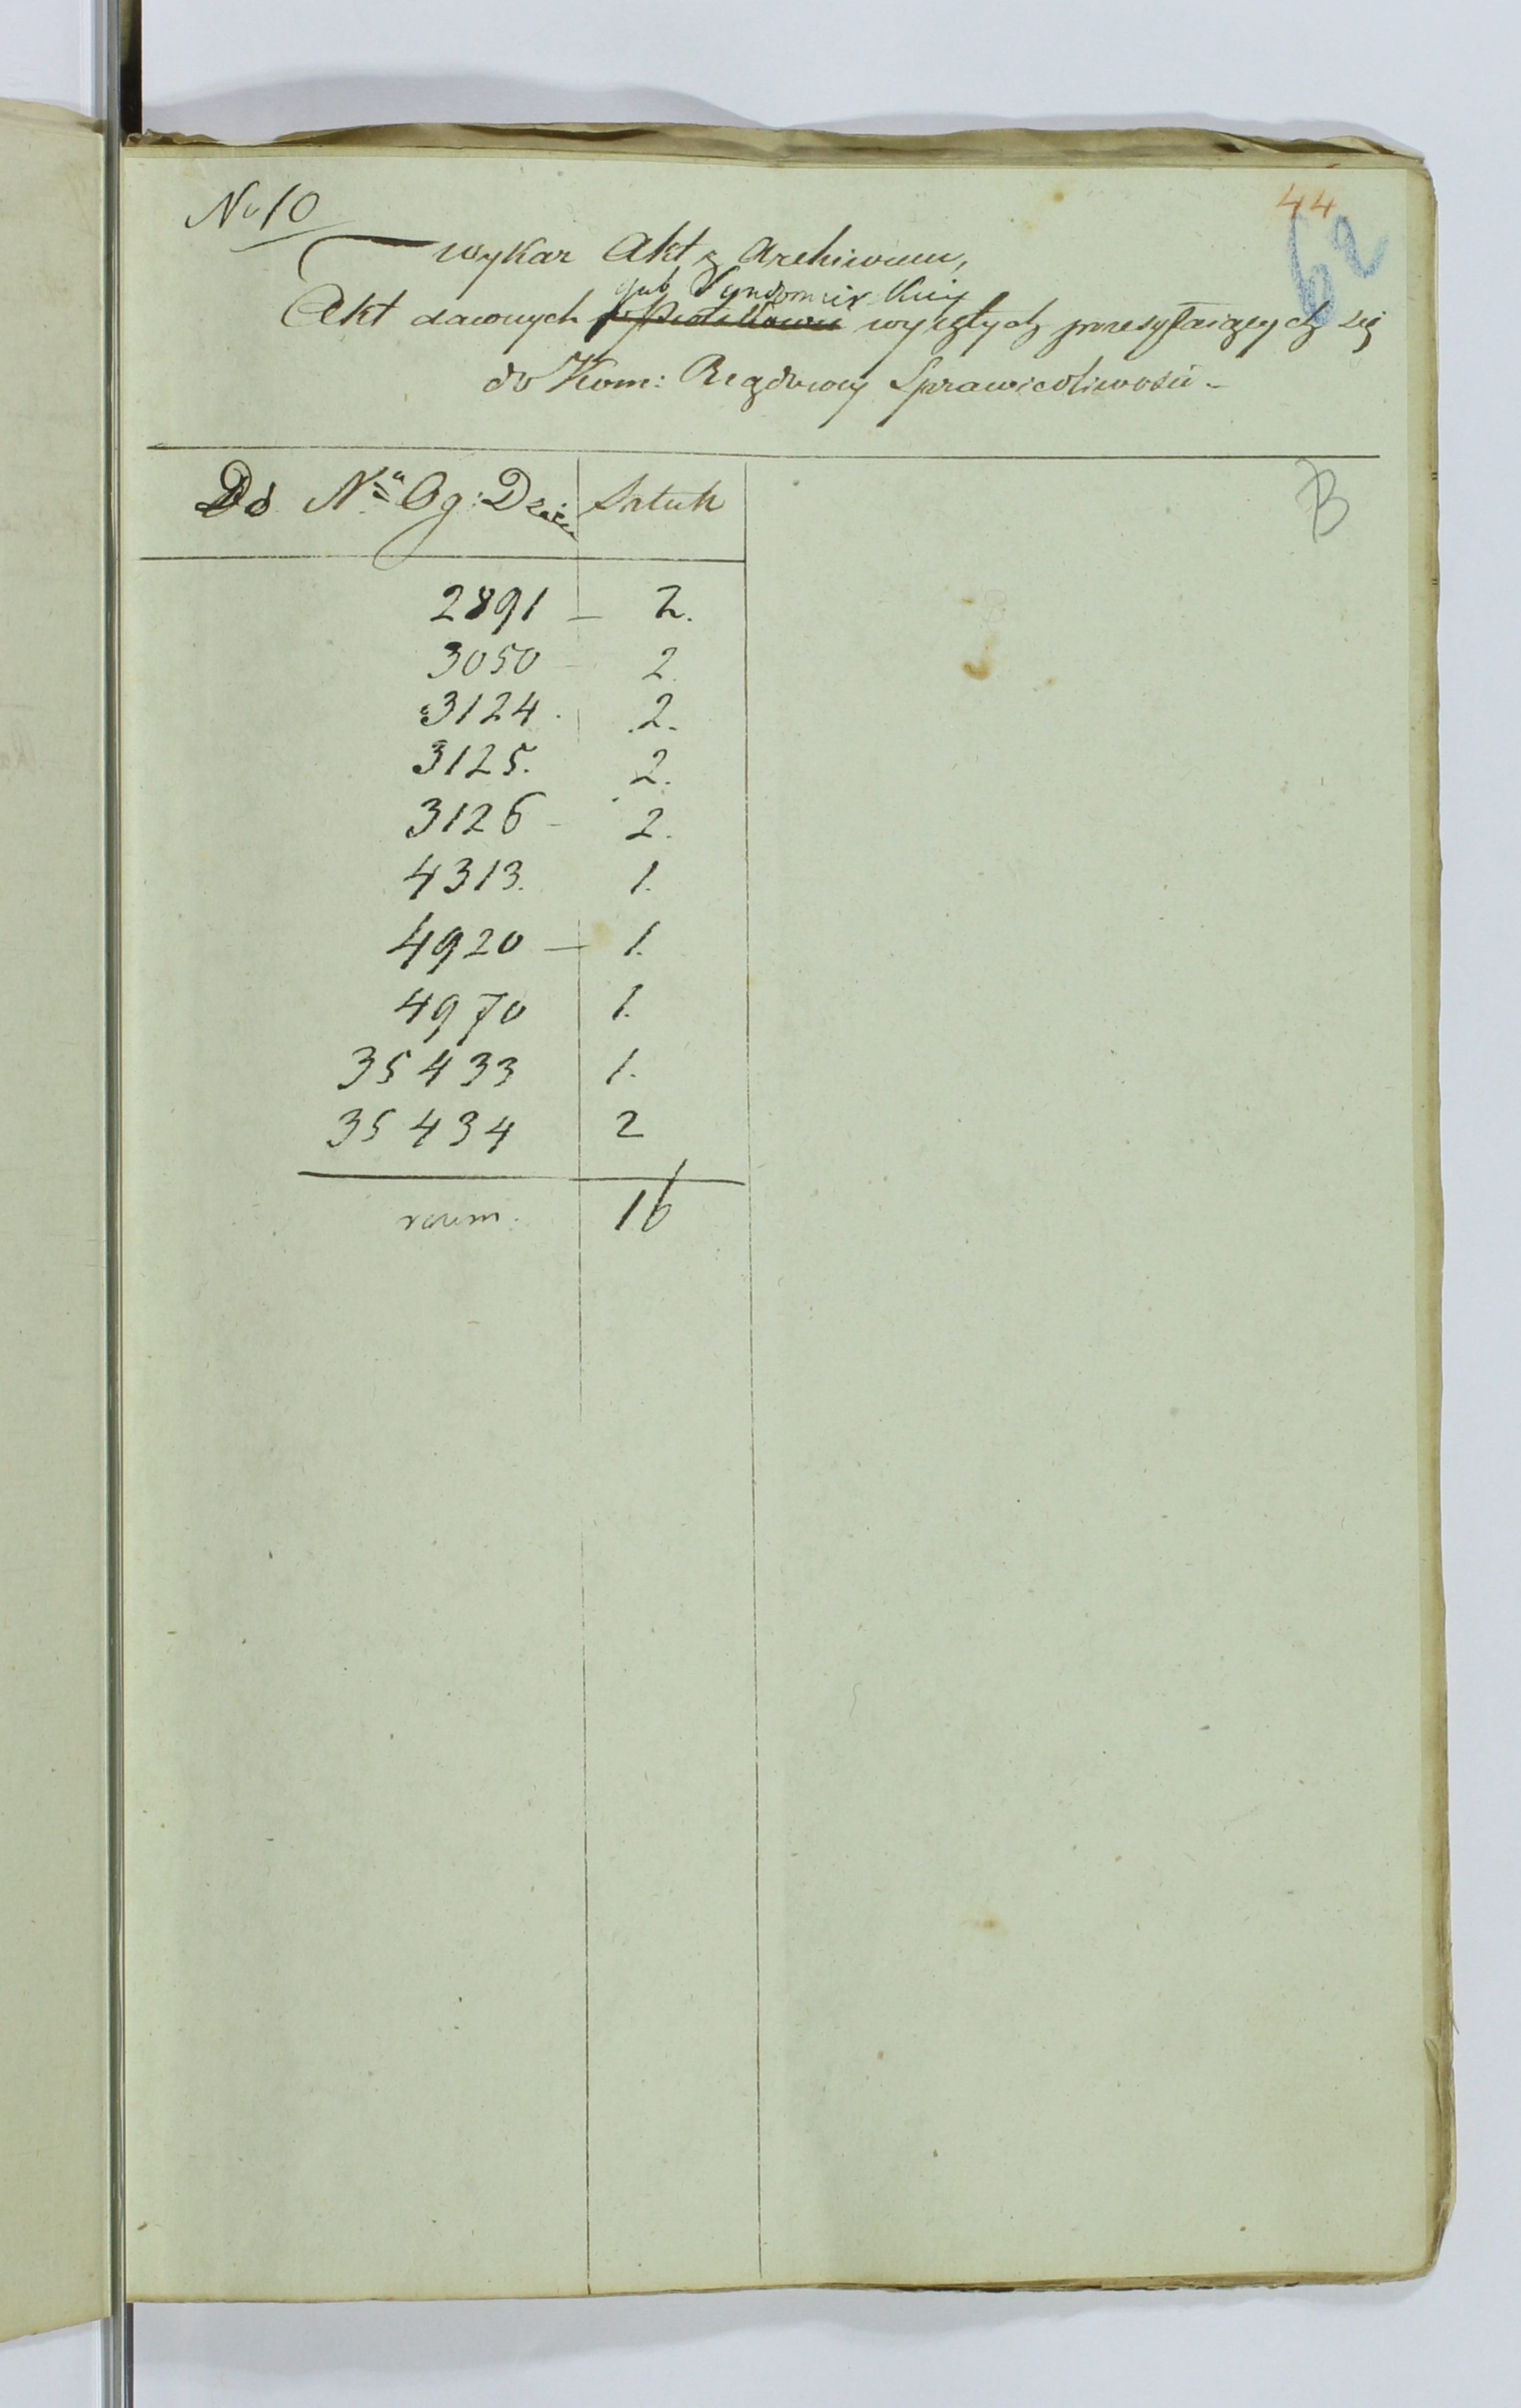 No 10
44
62
wykaz Akt z Archiwum,
gub Sandomirskiej
Akt dawnych w Piotrkowie wyiętych przesyłaiących się
do Kom: Rządowey Sprawiedliwości -
Do Nru Og: Dzien Sztuk
B
2891 - 2.
3050 - 2.
3124. 2.
3125. 2.
3126 - 2.
4313. 1.
4920 - 1.
4970 1.
35433 1.
35434 2
razem. 16